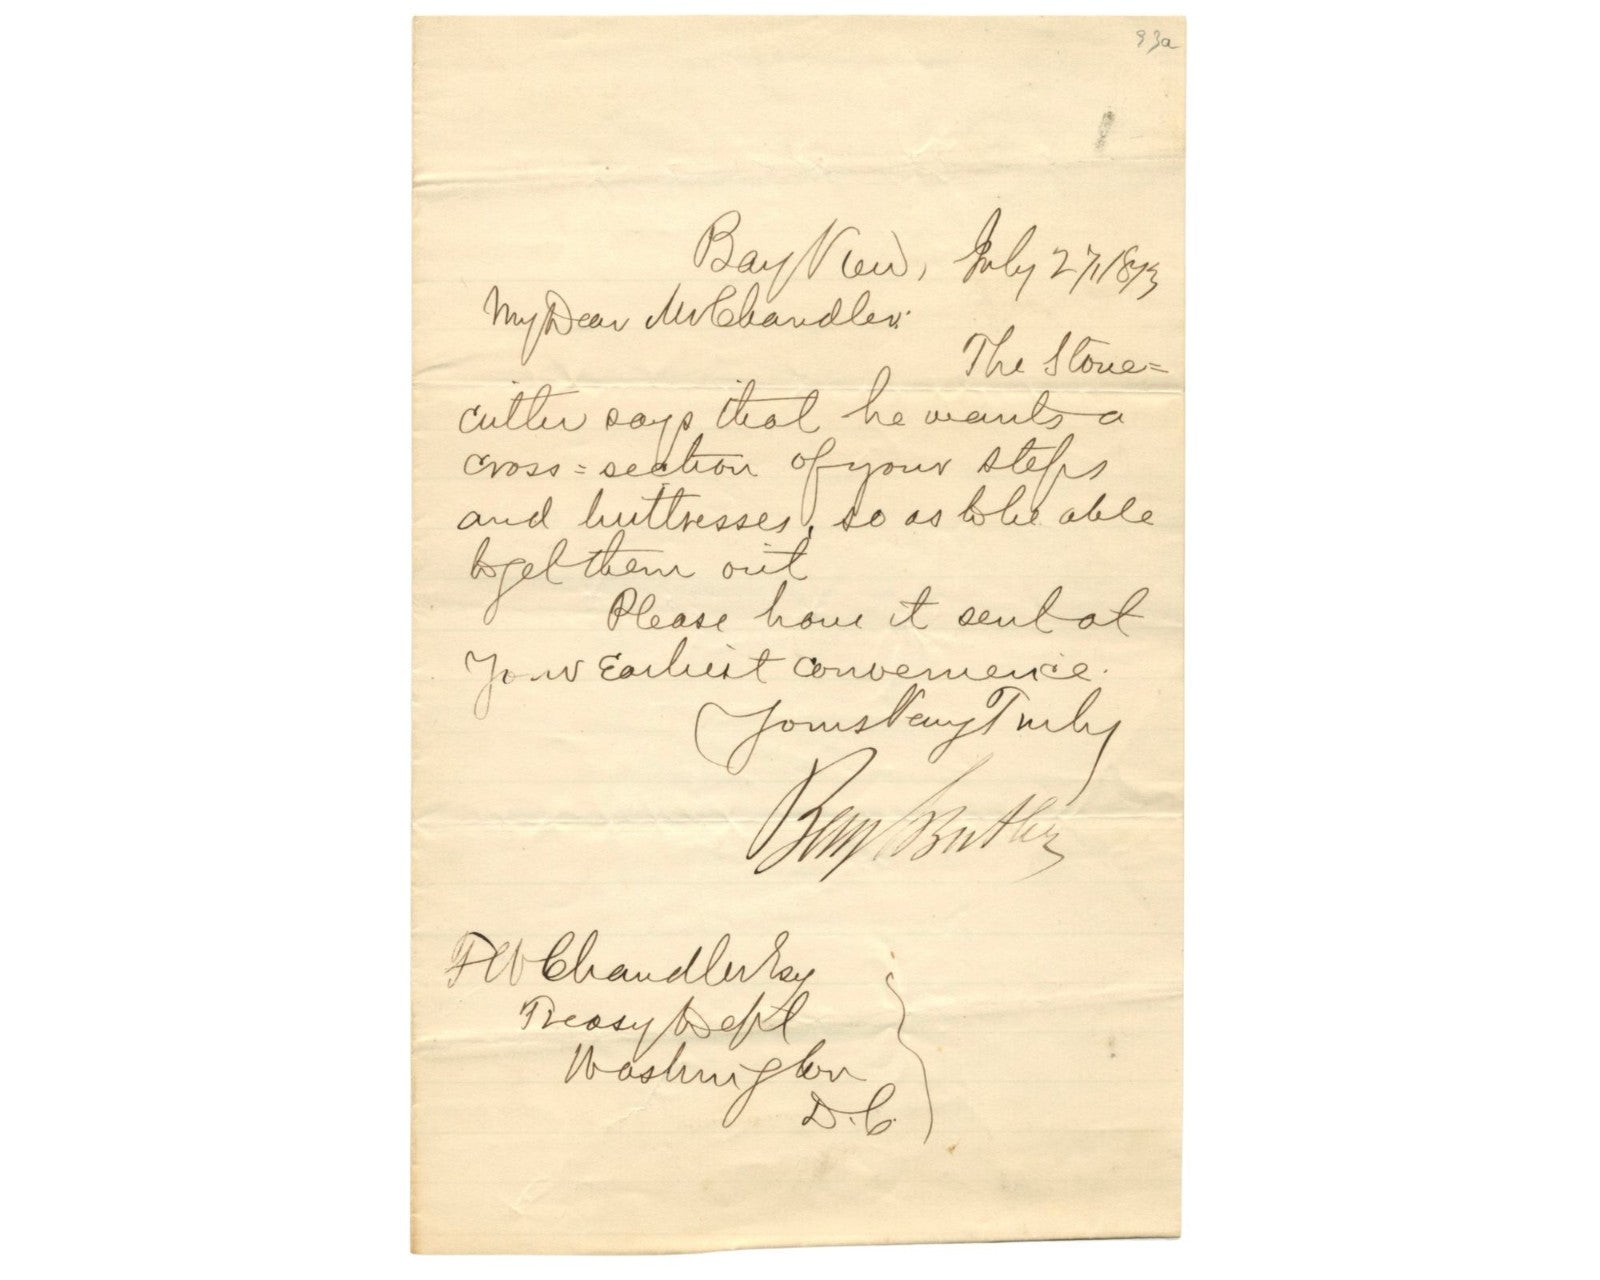 93a
Bay View, July 27, 1873
My Dear Mr Chandler:
The Stone=
cutter says that he wants a
cross=section of your steps
and buttresses, so as to be able
to get them out
Please have it sent at
Your Earliest convenience.
Yours Very Truly
Benj F Butler
F W Chandler Esq
Treasy Dept
Washington
D.C.